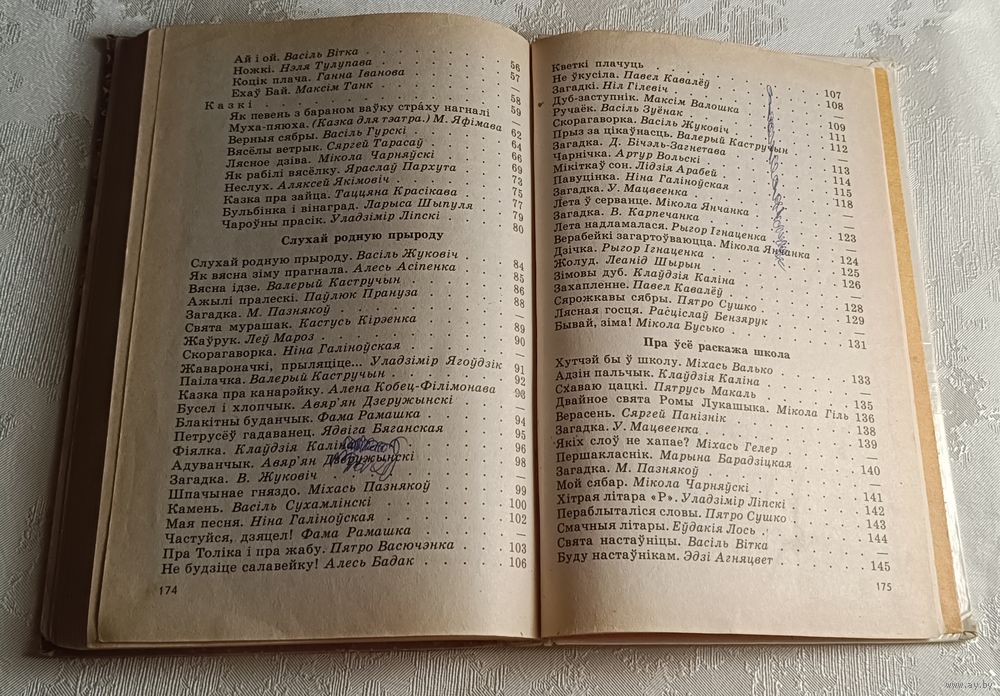 Ай і ой. Васіль Вітка . . . . . . . . 56
Ножкі. Нэля Тулупава . . . . . . . . 57
Коцік плача. Ганна Іванова . . . . . . . —
Ехаў Бай. Максім Танк . . . . . . . . 58
Казкі . . . . . . . . 59
Як певень з бараном ваўку страху нагналі
Муха-пяюха. (Казка для тэатра.) М. Яфімава 62
Верныя сябры. Васіль Гурскі . . . . . . 64
Вясёлы ветрык. Сяргей Тарасаў . . . . . 66
Лясное дзіва. Мікола Чарняўскі . . . . . 69
Як рабілі вясёлку. Яраслаў Пархута . . . . 73
Неслух. Аляксей Якімовіч . . . . . . . 75
Казка пра зайца. Таццяна Красікава . . . . 77
Бульбінка і вінаград. Ларыса Шыпуля . . . 79
Чароўны прасік. Уладзімір Ліпскі . . . . . 80
Слухай родную прыроду
Слухай родную прыроду. Васіль Жуковіч
Як вясна зіму прагнала. Алесь Асіпенка . . . 84
Вясна ідзе. Валерый Кастручын . . . . . 85
Ажылі пралескі. Паўлюк Прануза . . . . . 86
Загадка. М. Пазнякоў . . . . . . . . 88
Свята мурашак. Кастусь Кірэенка . . . . . —
Жаўрук. Леў Мароз . . . . . . . . 89
Скорагаворка. Ніна Галіноўская . . . . . 90
Жавароначкі, прыляціце... Уладзімір Ягоўдзік 91
Паілачка. Валерый Кастручын . . . . . . 92
Казка пра канарэйку. Алена Кобец-Філімонава 93
Бусел і хлопчык. Авяр'ян Дзеружынскі . . . —
Блакітны буданчык. Фама Рамашка . . . . 94
Петрусёў гадаванец. Ядвіга Бяганская . . . . 95
Фіялка. Клаўдзія Каліна . . . . . . . 96
Адуванчык. Авяр'ян Дзеружынскі . . . . . 98
Загадка. В. Жуковіч . . . . . . . . —
Шпачынае гняздо. Міхась Пазнякоў . . . . 99
Камень. Васіль Сухамлінскі . . . . . . 100
Мая песня. Ніна Галіноўская . . . . . . 102
Частуйся, дзяцел! Фама Рамашка . . . . . —
Пра Толіка і пра жабу. Пятро Васючэнка . . 103
Не будзіце салавейку! Алесь Бадак . . . . 106
174
Кветкі плачуць
Не ўкусіла. Павел Кавалёў . . . . . . 107
Загадкі. Ніл Гілевіч . . . . . . . . 108
Дуб-заступнік. Максім Валошка . . . . . —
Ручаёк. Васіль Зуёнак . . . . . . . 109
Скорагаворка. Васіль Жуковіч . . . . . 111
Прыз за цікаўнасць. Валерый Кастручын . . 112
Загадка. Д. Бічэль-Загнетава . . . . . . —
Чарнічка. Артур Вольскі . . . . . . . 113
Мікіткаў сон. Лідзія Арабей . . . . . . 114
Павуцінка. Ніна Галіноўская . . . . . . 115
Загадка. У. Мацвеенка . . . . . . . 118
Лета ў серванце. Мікола Янчанка . . . . . —
Загадка. В. Карпечанка . . . . . . . —
Лета надламалася. Рыгор Ігнаценка . . . . 123
Верабейкі загартоўваюцца. Мікола Янчанка —
Дзічка. Рыгор Ігнаценка . . . . . . . 124
Жолуд. Леанід Шырын . . . . . . . 125
Зімовы дуб. Клаўдзія Каліна . . . . . . 126
Захапленне. Павел Кавалёў . . . . . . —
Сярожкавы сябры. Пятро Сушко . . . . . 128
Лясная госця. Расціслаў Бензярук . . . . . 129
Бывай, зіма! Мікола Бусько . . . . . . 131
Пра ўсё раскажа школа
Хутчэй бы ў школу. Міхась Валько
Адзін пальчык. Клаўдзія Каліна . . . . . 133
Схаваю цацкі. Пятрусь Макаль . . . . . —
Двайное свята Ромы Лукашыка. Мікола Гіль 135
Верасень. Сяргей Панізнік . . . . . . 136
Загадка. У. Мацвеенка . . . . . . . 138
Якіх слоў не хапае? Міхась Гелер . . . . 139
Першакласнік. Марына Барадзіцкая . . . . —
Загадка. М. Пазнякоў . . . . . . . 140
Мой сябар. Мікола Чарняўскі . . . . . . —
Хітрая літара «Р». Уладзімір Ліпскі . . . . 141
Пераблыталіся словы. Пятро Сушко . . . . 142
Смачныя літары. Еўдакія Лось . . . . . 143
Свята настаўніцы. Васіль Вітка . . . . . 144
Буду настаўнікам. Эдзі Агняцвет . . . . . 145
175
www.ay.by